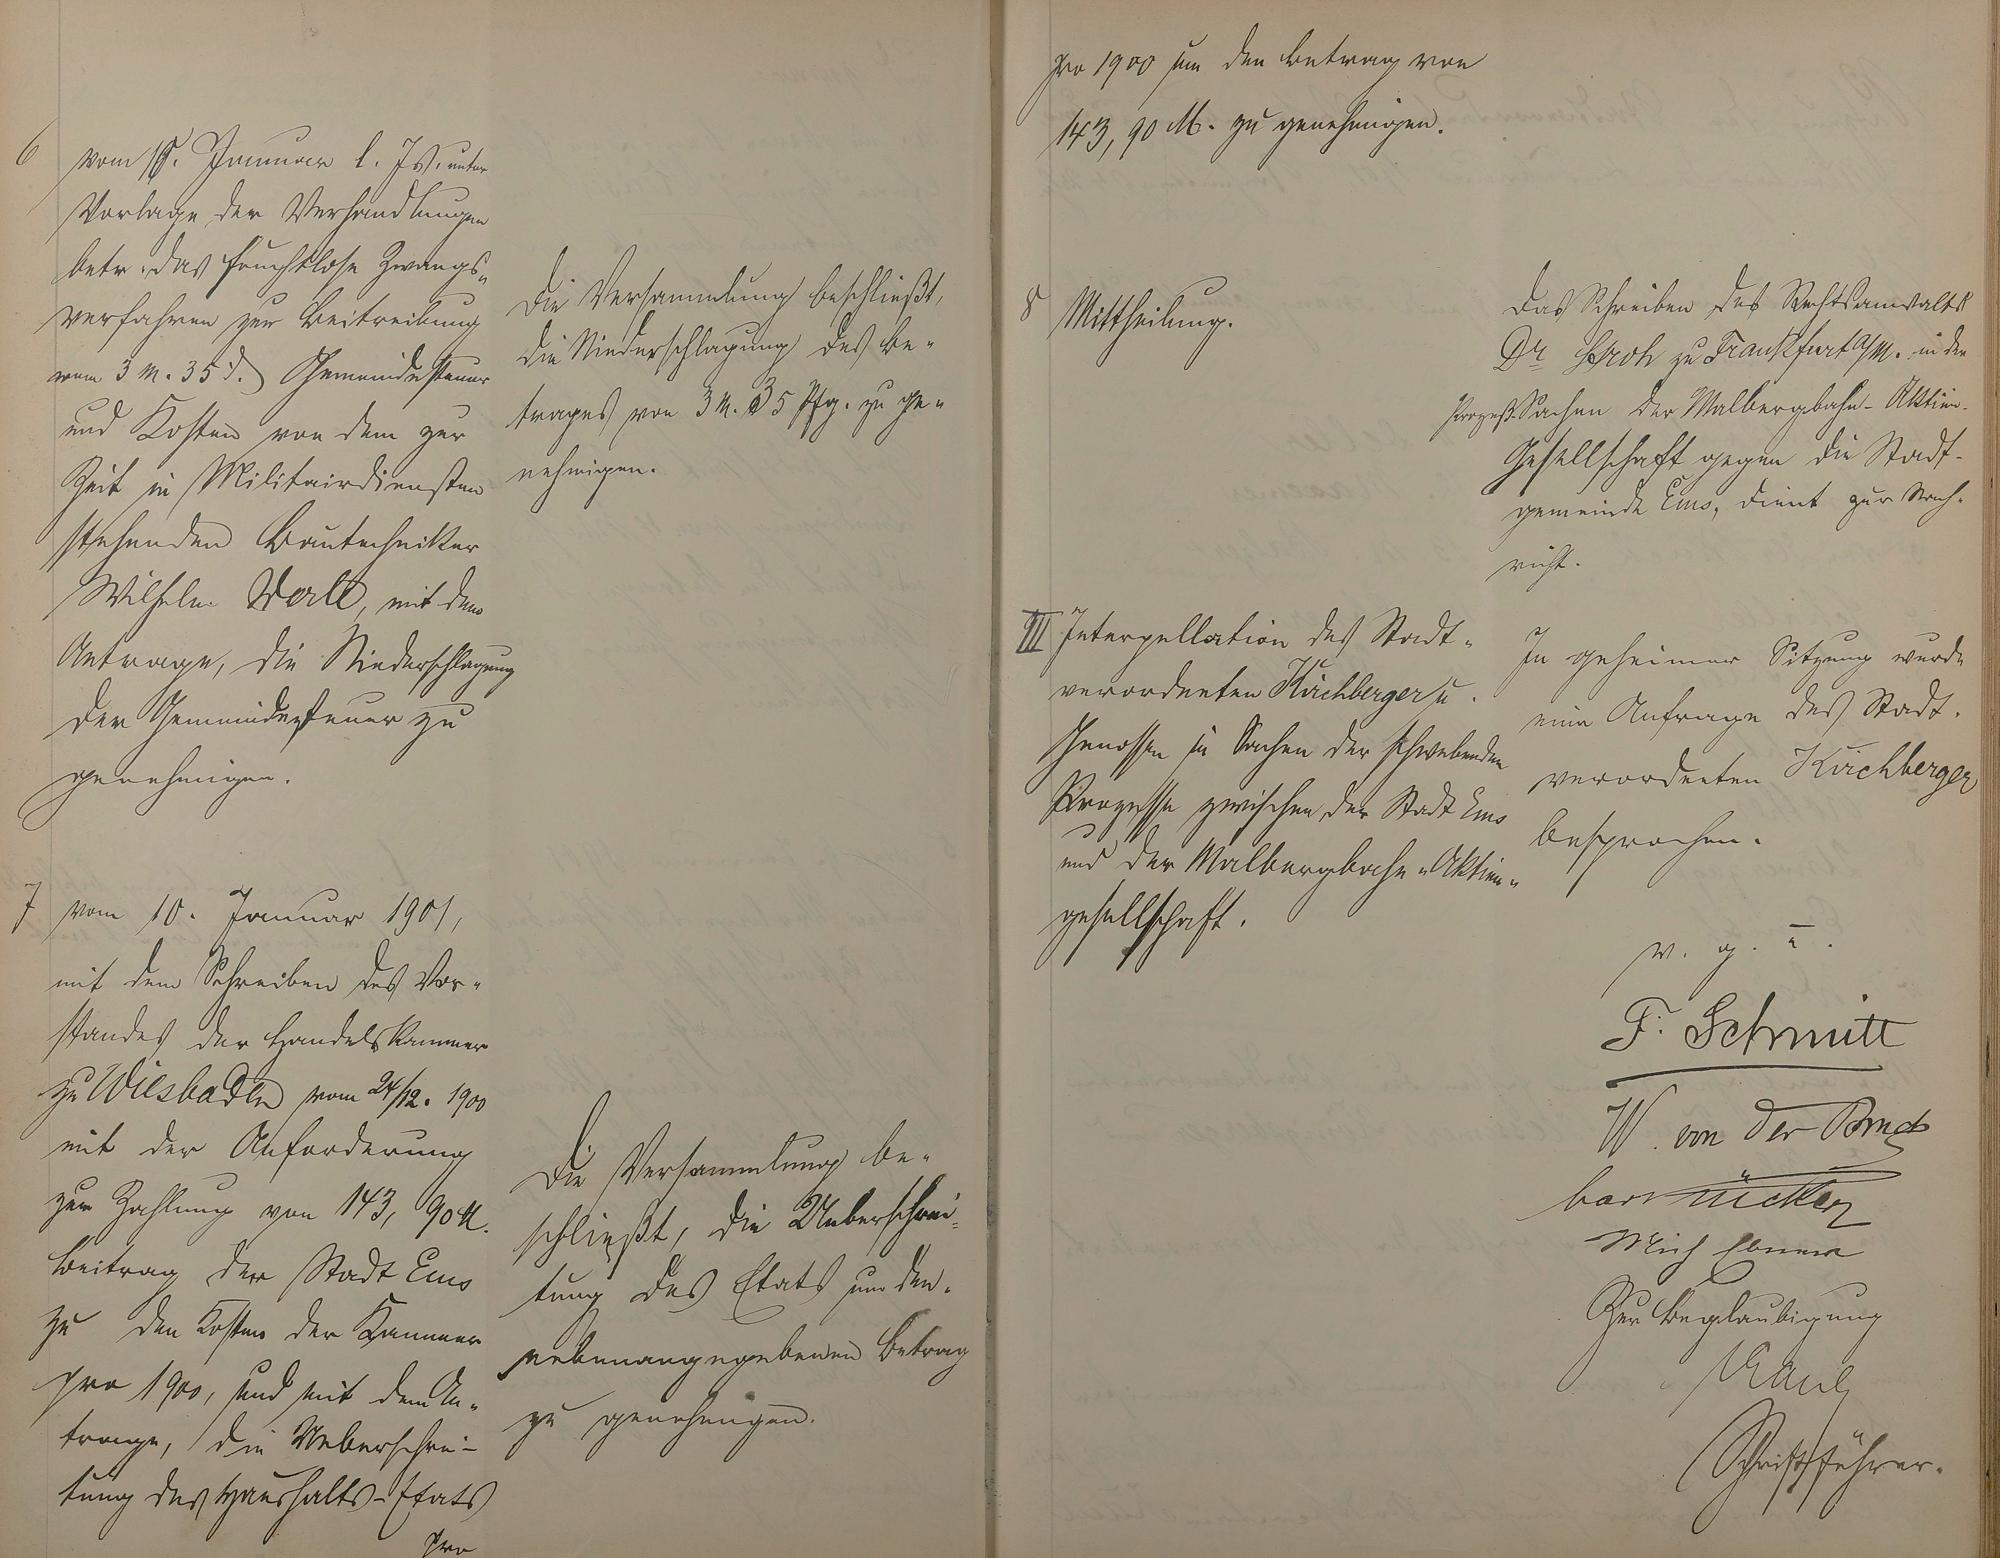 6 vom 15. Januar l. Js. unter
Vorlage der Verhandlungen
betr. das fruchtlose Zwangs-
verfahren zur Beitreibung
von 3 M. 35 d. Gemeindesteuer
und Kosten von dem zur
Zeit in Militairdiensten
stehenden Bautechniker
Wilhelm, mit dem
Antrage, die Niederschlagung
der Gemeindesteuer zu
genehmigen.
Die Versammlung beschließt,
die Niederschlagung des Be-
trages von 3 M. 35 Pfg. zu ge-
nehmigen.
7 vom 10. Januar 1901,
mit dem Schreiben des Vor-
standes der Handelskammer
zu Wiesbaden vom 24/12. 1900
mit der Anforderung
zur Zahlung von 143,90 M.
Beitrag der Stadt Ems
zu den Kosten der Kammer
pro 1900, und mit dem An-
trage, die Ueberschrei-
tung des Haushalts-Etats
pro
Die Versammlung be-
schließt, die Ueberschrei-
tung des Etats um den
nebenangegebenen Betrag
zu genehmigen.
pro 1900 um den Betrag von
143,90 M. zu genehmigen.
8 Mittheilung.
Das Schreiben des Rechtsanwalts
Dr zu Frankfurt a/M. in den
Prozeß-Sachen der Malbergbahn-Aktien-
Gesellschaft gegen die Stadt-
gemeinde Ems, dient zur Nach-
richt.
III Interpellation des Stadt-
verordneten Kirchberger u.
Genossen in Sachen der schwebenden
Prozesse zwischen der Stadt Ems
und der Malbergbahn-Aktien-
gesellschaft.
In geheimer Sitzung wurde
eine Anfrage des Stadt-
verordneten Kirchberger
besprochen.
v. g. u.
F. Schmitt
W. von der
Zur Beglaubigung
Kaul
Schriftführer.